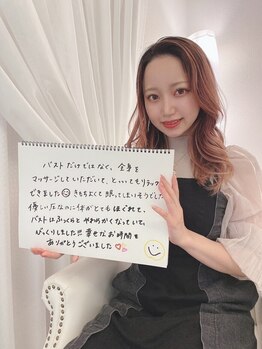 バストだけではなく、全身を
マッサージしていただいて、とってもリラックス
できました😊きもちよくて眠ってしまいそうでした
優しい圧なのに体がとてもほぐれて、
バストはふっくらとやわらかくなっていて。
びっくりしました!!幸せなお時間を
ありがとうございました♡